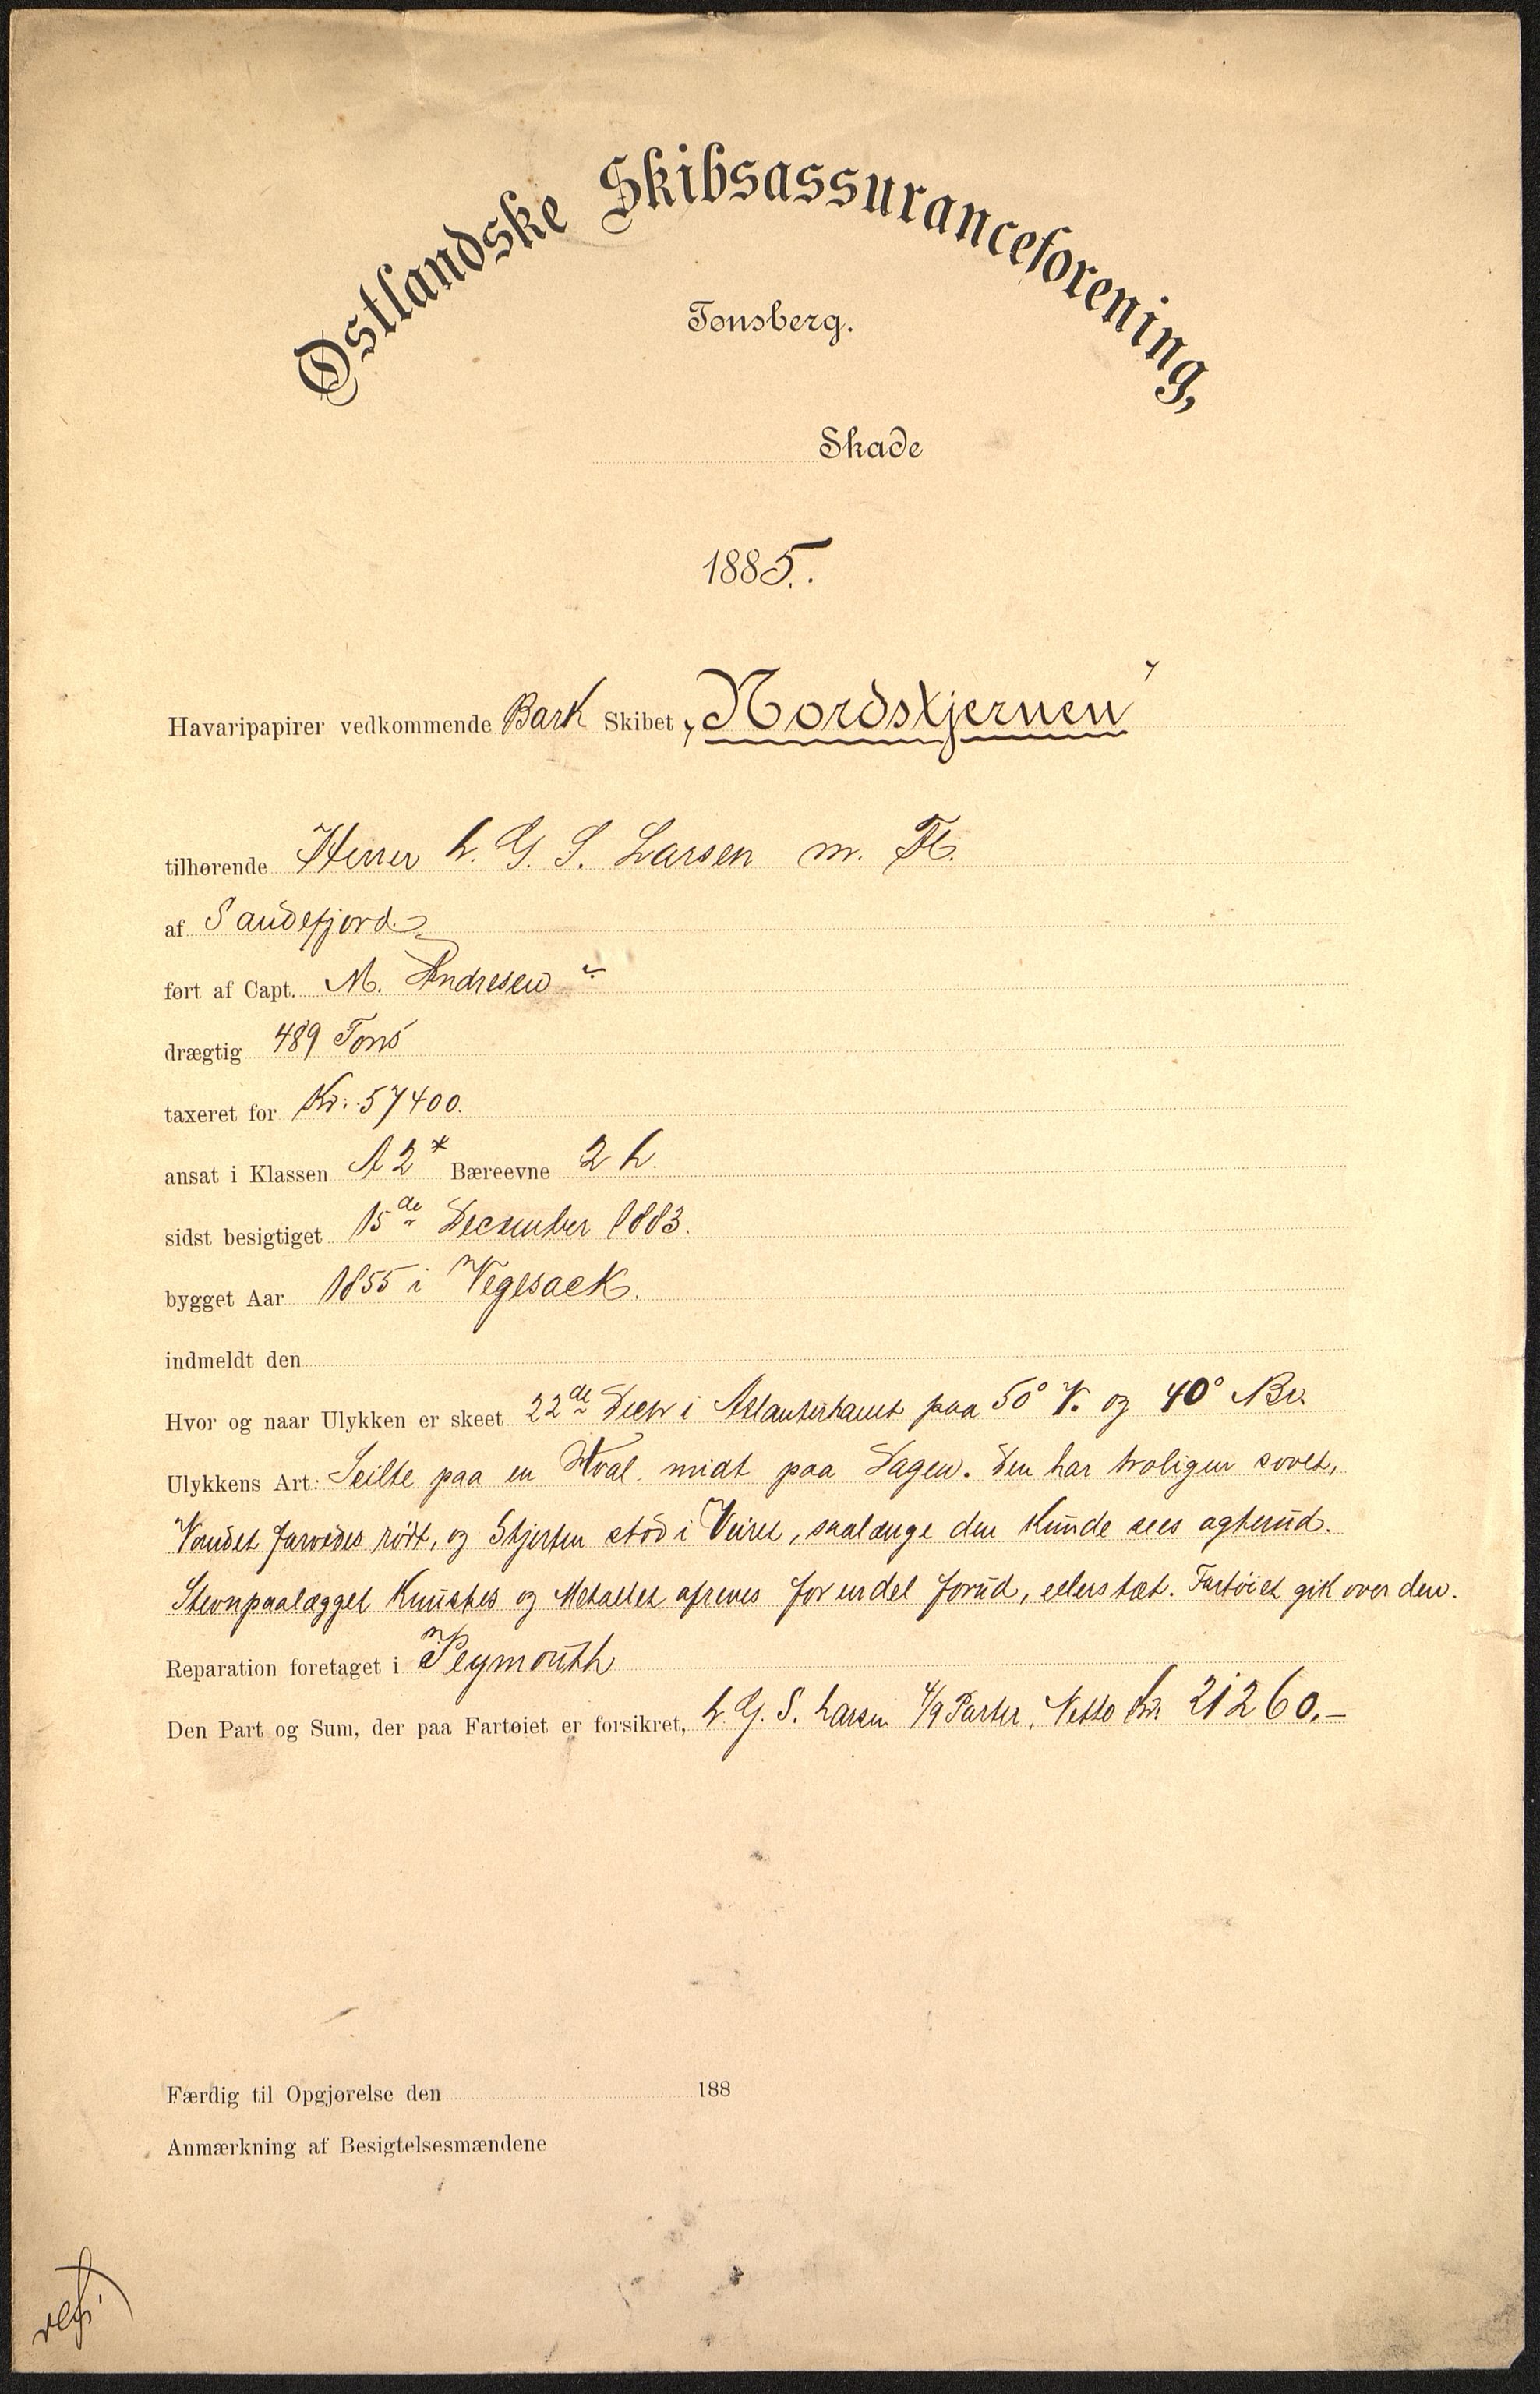 Østlandske Skibsassuranceforening,
Tønsberg.
Skade
1885.
Havaripapirer vedkommende Bark Skibet „Nordstjernen”
tilhørende Herrer L. G. S. Larsen m. Fl.
af Sandefjord
ført af Capt. M. Andresen
drægtig 489 Tons
taxeret for Kr. 57400.
ansat i Klassen A 2* Bæreevne 2 L.
sidst besigtiget 15de December 1883.
bygget Aar 1855 i Vegesack.
indmeldt den
Hvor og naar Ulykken er skeet 22de Decbr i Atlanterhavet paa 50° V. og 40° NBr.
Ulykkens Art: Seilte paa en Hval midt paa Dagen. Den har troligen sovet,
Vandet farvedes rödt, og Stjerten stod i Veiret, saalænge den Kunde sees agterud.
Stevnpaalægget Knustes og Metallet afreves for endel forud, ellers tæt. Fartöiet gik over den.
Reparation foretaget i Pleymouth
Den Part og Sum, der paa Fartøiet er forsikret, L. G. S. Larsen 4/9 Parter, Netto Kr. 21260.—
Færdig til Opgjørelse den 188
Anmærkning af Besigtelsesmændene